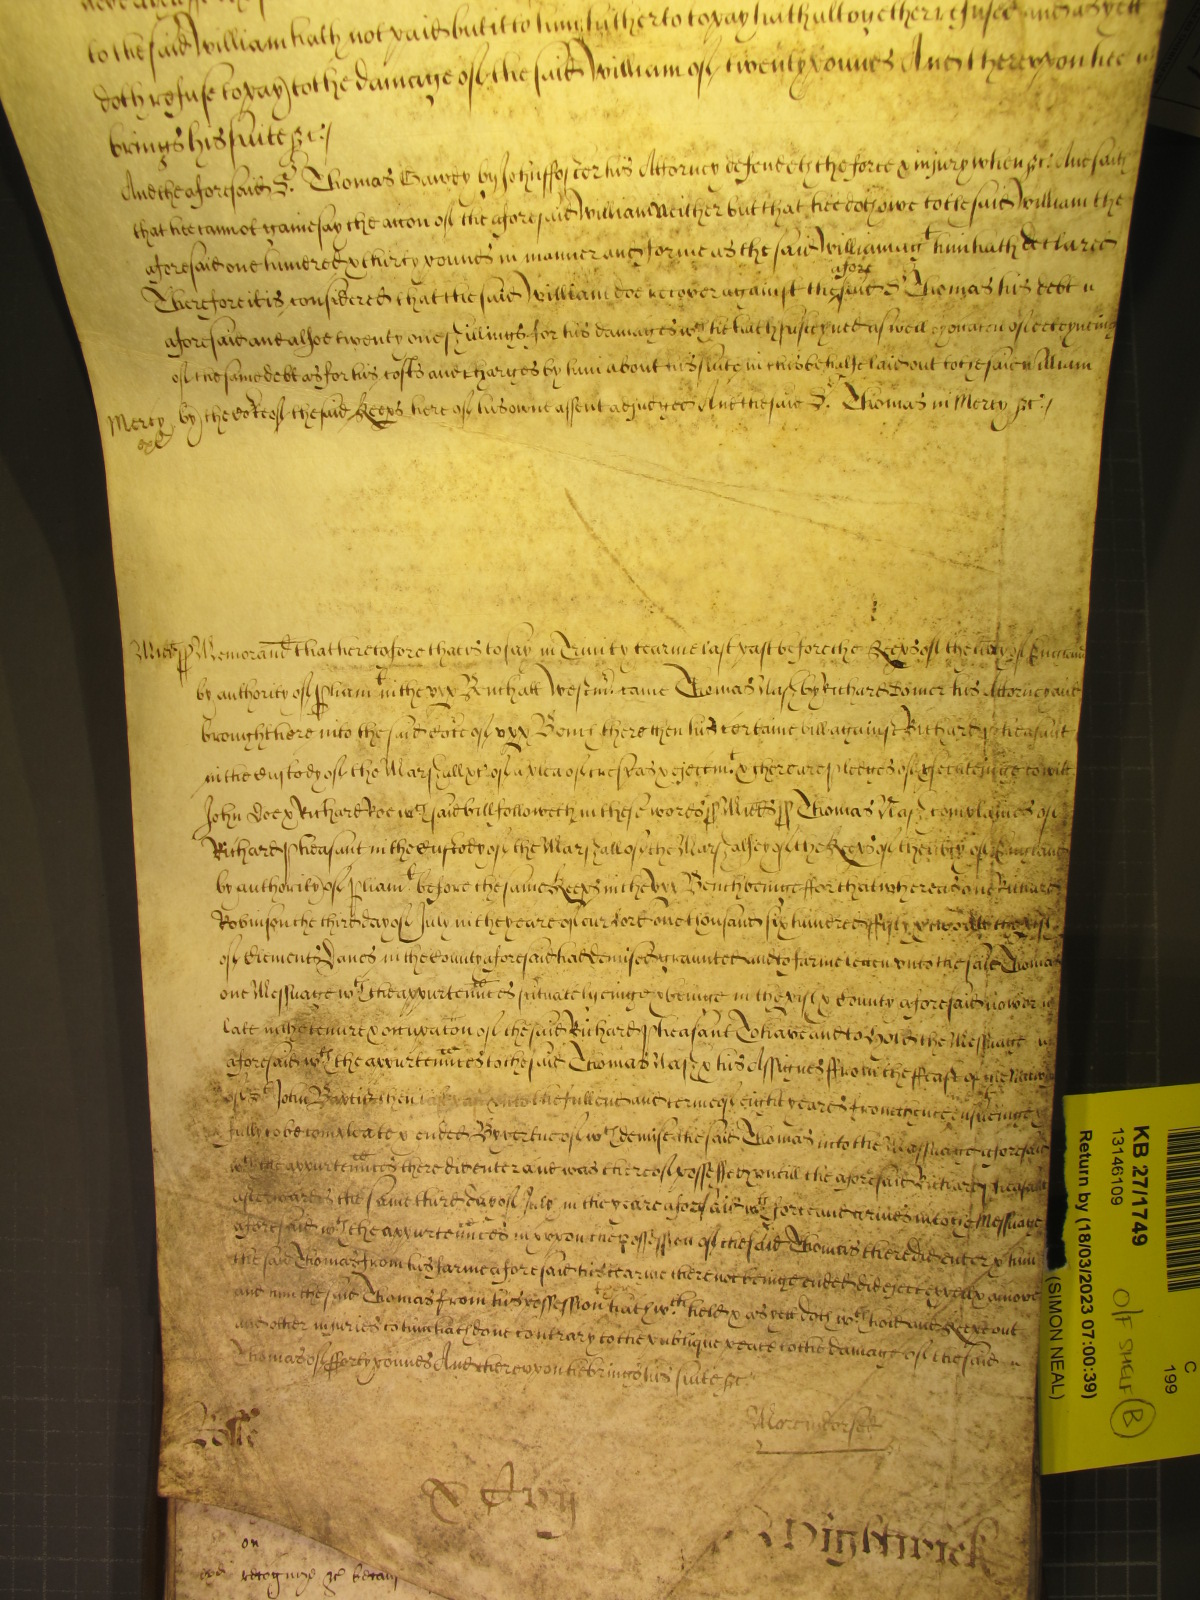 to the said William hath not paid but it to him hitherto to pay hath altogether refused and as yett
doth refuse to pay to the damage of the said William of twenty pounds And thereupon hee
brings his suite &c:/
And the aforesaid S.r Thomas Gawdy by John ffoster his Attorney defendeth the force & injury when &c: And saith
that hee cannot gainesay the accon of the aforesaid William Neither but that hee doth owe to the said William the
aforesaid one hundred & thirty pounds in manner and forme as the said William ag.t him hath declared
Therefore it is considered that the said William doe recover against the aforesaid S.r Thomas his debt
aforesaid and alsoe twenty one shillings for his damages w.ch hee hath susteyned as well by occasion of deteyneing
of the same debt as for his costs and charges by him about his suite in this behalfe laid out to the said William
Mercy by the Co.rte of the said Keep.s here of his owne assent adjudged And the said S.r Thomas in Mercy &c:/
Midd ss Memorand That heretofore that is to say in Trinity tearme last past before the Keep.s of the liberty of England
by authority of Pliam.t in the upp Bench att Westm. came Thomas Nash by Richard his Attorney and
brought here into the said Co.rte of upp Bench there then his certaine bill against Richard Pheasant
in the custody of the Marshall &c: of a plea of trespas & ejectm.t & there are pledges of prosecuteinge to witt
John Doe & Richard Roe w.ch said bill followeth in these words ss Midd ss Thomas Nash complaines of
Richard Pheasant in the custody of the Marshall of the Marshalsey of the Keep.s of the liberty of England
by authority of Pliam.t before the same Keep.s in the upp Bench beinge ffor that whereas one Richard
Robinson the third day of July in the yeare of our lord one thousand six hundred ffifty & two att the pish
of Clement Danes in the County aforesaid had demised graunted and to farme letten unto the said Thomas
one Messuage w.th the appurtennces scituate lyeinge & beinge in the pish & County aforesaid now or
late in the tenure & occupacon of the said Richard Pheasant To have and to hold the Messuage
aforesaid w.th the appurtennces to the said Thomas Nash & his Assignes ffrom the ffeast of the Nativity
of S.t John Baptist then last past unto the full end and terme of eight yeares from thence ensueinge &
fully to be compleate & ended By vertue of w.ch demise the said Thomas into the Messuage aforesaid
w.th the appurtennces there did enter and was thereof possessed untill the aforesaid Richard Pheasant
afterwards the same third day of July in the yeare aforesaid w.th force and armes into the Messuage
aforesaid w.th the appurtennces in & upon the possession of the said Thomas there did enter & him
the said Thomas from his farme aforesaid his tearme there not beinge ended did eject expell & amove
and him the said Thomas from his possession hath w.th held & as yett doth w.th hold and keepe out
and other injuries to him hath done contrary to the publique peace to the damage of the said
Thomas of fforty pounds And thereupon he brings his suite &c:
More indorsed
Rolle
Wightwick
on
recognize &c
KB 27/1749
13146109
Return by (18/03/2023 07:00:39)
(SIMON NEAL)
C
199
O/F SHELF B